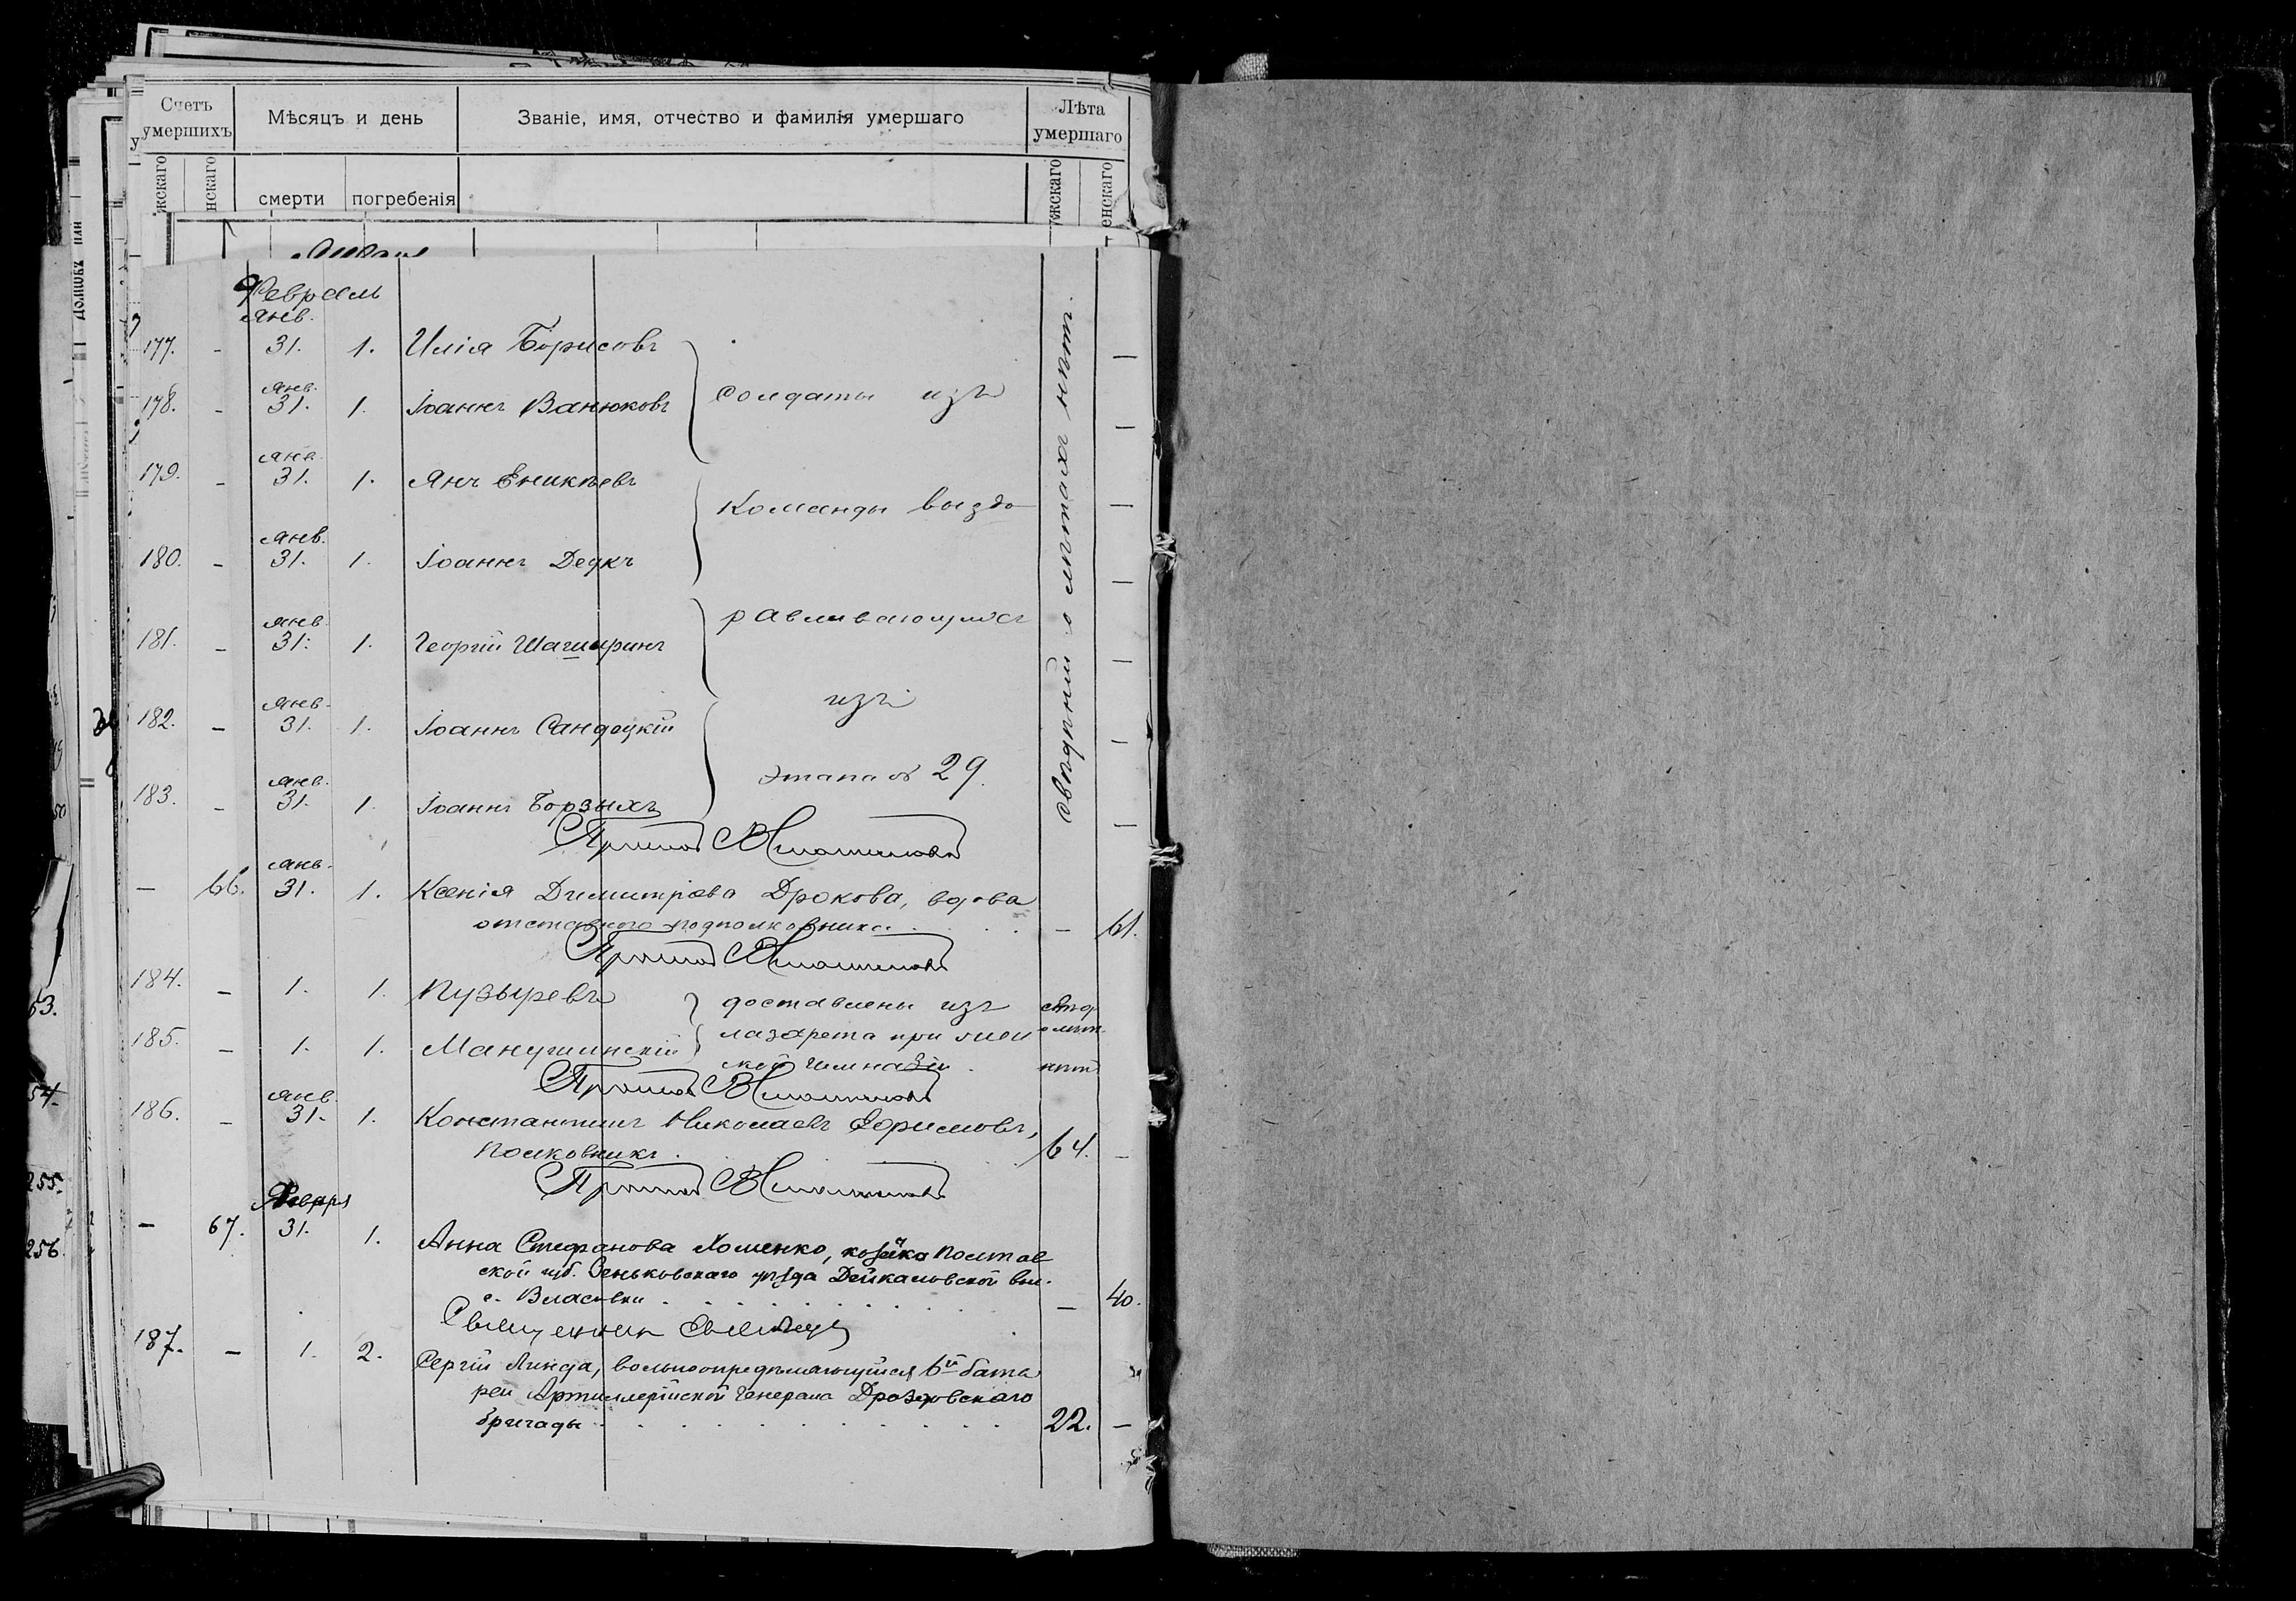 Счетъ умершихъ
Мѣсяцъ и день
Званіе, имя, отчество и фамилія умершаго
Лѣта умершаго
жскаго
нскаго
смерти
погребенія
жскаго
енскаго
Февраль
177. - Янв. 31. 1. Илія Борисовъ —
178. - Янв. 31. 1. Іоаннъ Ванюковъ —
179. - Янв. 31. 1. Янъ Еникѣевъ —
180. - Янв. 31. 1. Іоаннъ Дедкъ —
181. - Янв. 31. 1. Георгій —
182. - Янв. 31. 1. Іоаннъ Сандоцкій —
183. - Янв. 31. 1. Іоаннъ Борзыхъ —
солдаты изъ
команды выздо
равливающихъ
изъ
этапа № 29.
свѣдѣній о лѣтахъ нѣтъ.
— 66. Янв. 31. 1. Ксенія Димитріева Дрокова, вдова
отставного подполковника — 61.
184. - 1. 1. Пузыревъ
185. - 1. 1.
доставлены изъ
лазарета при
гимназіи
свѣд.
о лѣт.
нѣтъ
186. - Янв. 31. 1. Константинъ Николаевъ Ефримовъ,
полковникъ 64. —
— 67. Января 31. 1. Анна Стефанова Хоменко, козачка Полтав
ской губ. Зеньковскаго уѣзда Дейкаловской вол.
с. Власовки — 40.
Священник
187. - 1. 2. Сергій Линда, вольноопредѣляющійся 6й бата
реи Артиллерійской Генерала Дроздовскаго
бригады 22. —
53.
54.
255.
256.